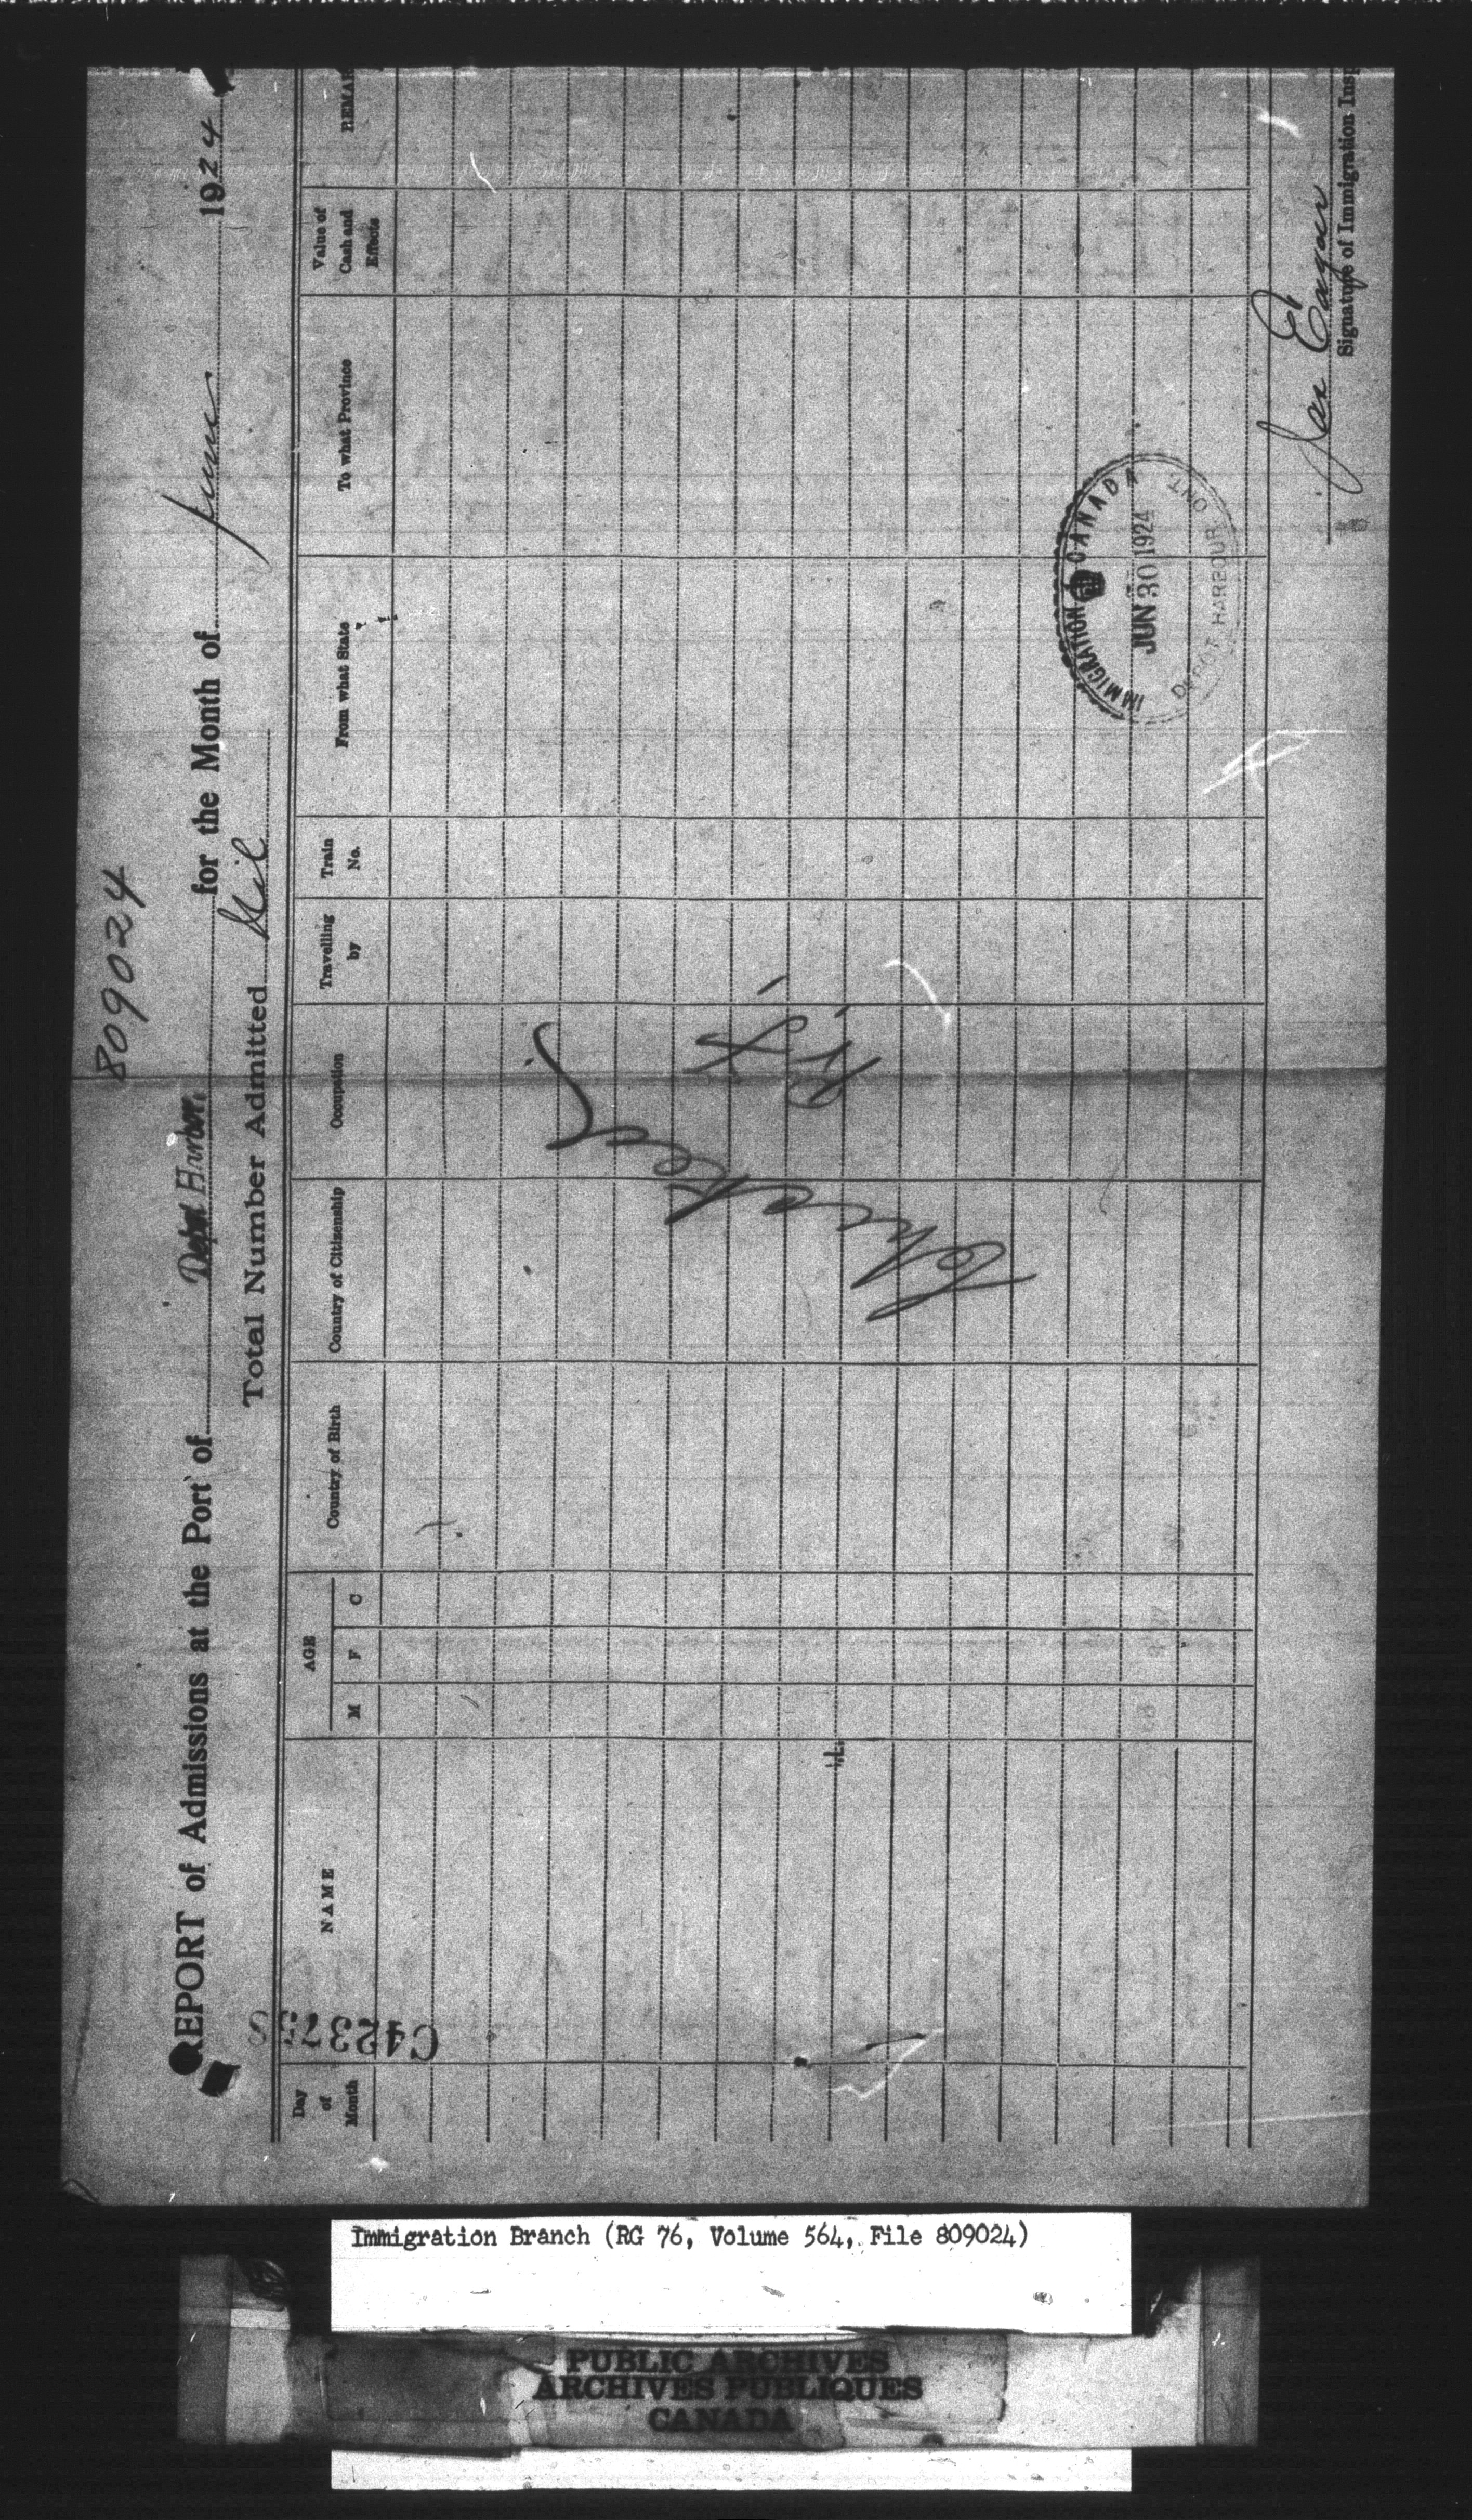 809024
REPORT of Admissions at the Port of Depot Harbor, for the Month of June 1924
Total Number Admitted Nil
Day of Month
NAME
AGE
M F C
Country of Birth
Country of Citizenship
Occupation
Travelling by
Train No.
From what State
To what Province
Value of Cash and Effects
REMAR
IMMIGRATION CANADA
JUN 30 1924
DEPOT HARBOUR ONT.
Signature of Immigration Insp
Immigration Branch (RG 76, Volume 564, File 809024)
PUBLIC ARCHIVES
ARCHIVES PUBLIQUES
CANADA